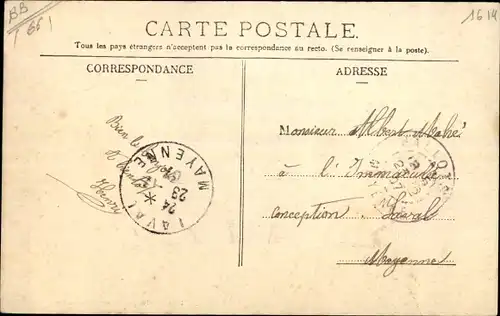 BB
66
1614
CARTE POSTALE.
Tous les pays étrangers n'acceptent pas la correspondance au recto. (Se renseigner à la poste).
CORRESPONDANCE
ADRESSE
Bien le
Henry
LAVAL
MAYENNE
24
29
Monsieur Albert Mahé
à l'Immaculée
conception Laval
Mayenne